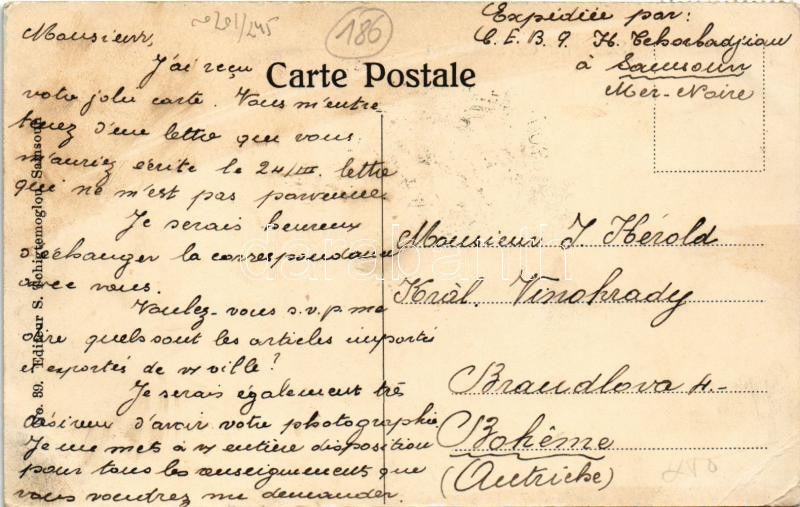 Monsieur,
J'ai reçu
votre jolie carte. Vous m'entre
tenez d'une lettre que vous
m'auriez écrite le 24/III. lettre
qui ne m'est pas parvenue.
Je serais heureux
d'échanger la correspondance
avec vous.
Voulez-vous s.v.p. me
dire quels sont les articles importés
et exportés de v/ville?
Je serais également très
désireux d'avoir votre photographie
Je me mets à v/ entière disposition
pour tous les renseignements que
vous voudrez me demander.
186
Carte Postale
Expédiée par:
C. E. B. 9. H. Tchorbadjian
à Samsoun
Mer-Noire
Monsieur J. Hérold
Král. Vinohrady
Brandlova 4.-
Bohême
(Autriche)
No. 39. Editeur S. Tchigtemoglou, Samsoun
darabanth